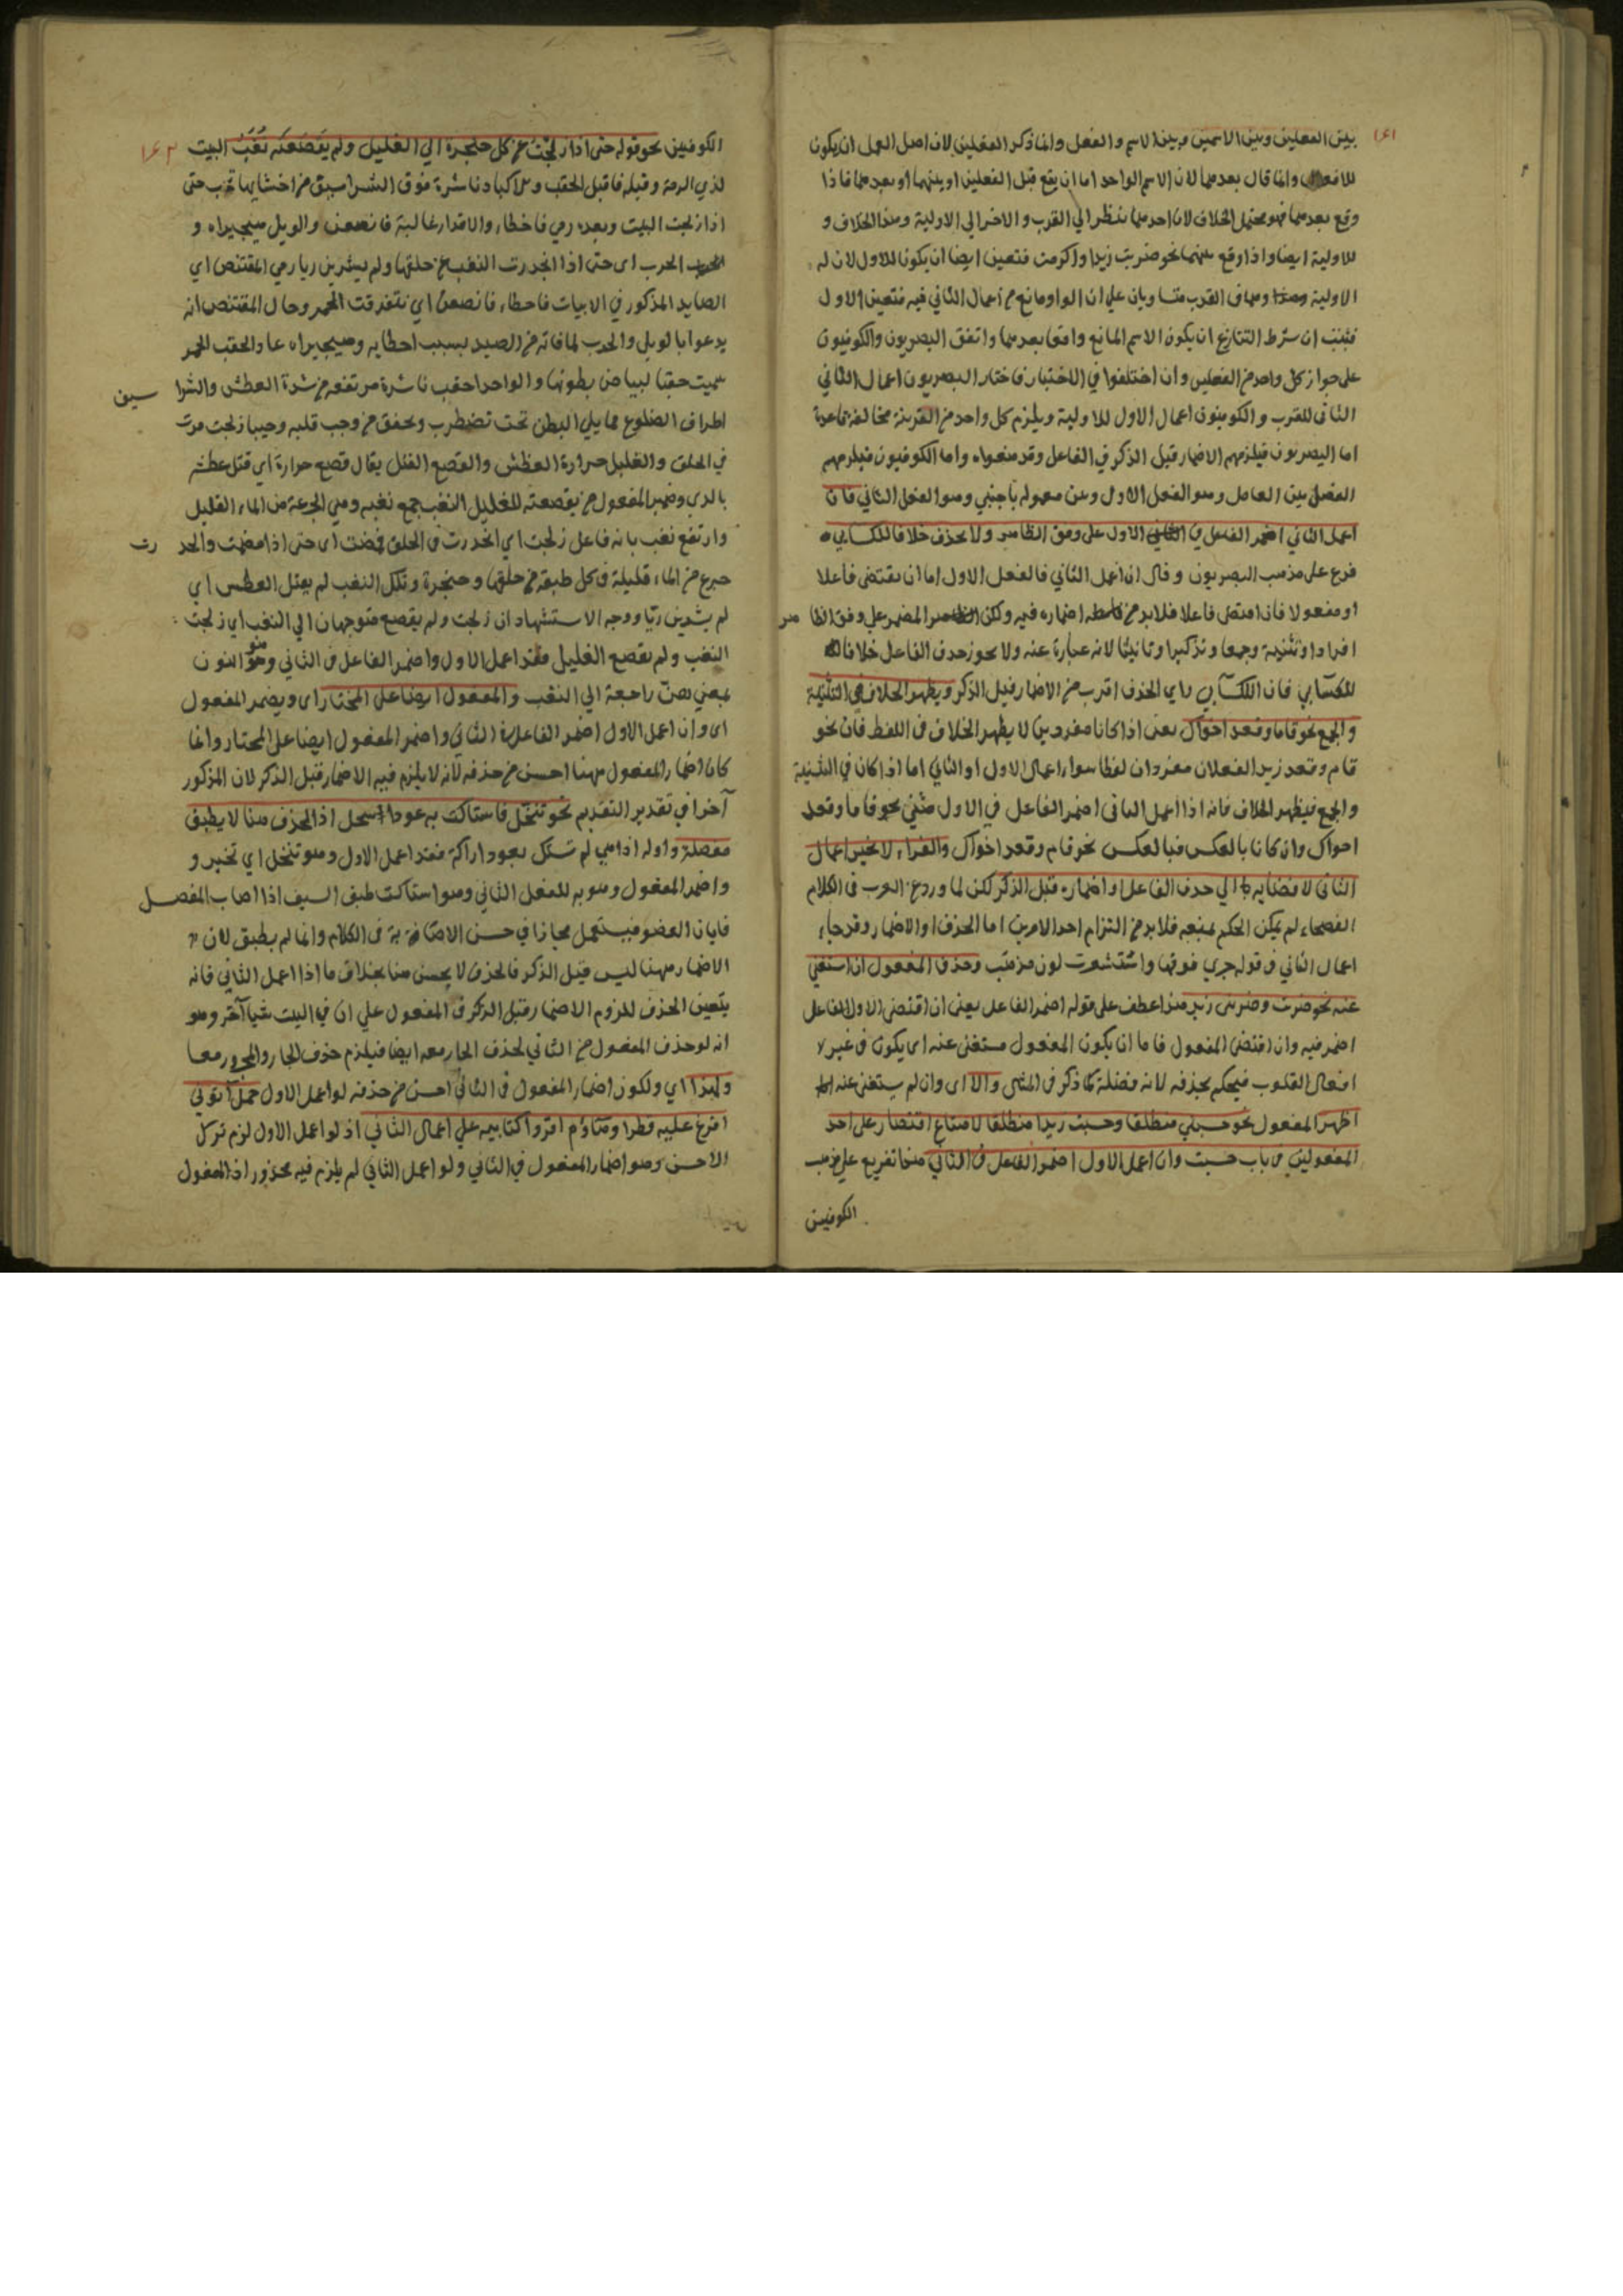 ١٤١
بين الفعلين وبين الاسمين وبين الاسم والفعل وانما ذكر الفعلين لان اصل العمل ان يكون
للافعال وانما قال بعدهما لان الاسم الواحد اما ان يقع قبل الفعلين او بينهما او بعدهما فاذا
وقع بعدهما فهو محتمل الخلاف لان احدهما ينظر الي القرب والاخر الي الاولية وهذا الخلاف و
للاولية ايضا واذا وقع بينهما نحو ضربت زيدا واكرمت فتعين ايضا ان يكون للاول لان له
الاولية وهما في القرب متساويان علي ان الواو مانع من اعمال الثاني فيه فتعين الاول
فثبت ان شرط التنازع ان يكون الاسم المانع واقعا بعدهما واتفق البصريون والكوفيون
علي جواز كل واحد من الفعلين وان اختلفوا في الاختيار فاختار البصريون اعمال الثاني
الثاني للقرب والكوفيون اعمال الاول للاولية ويلزم كل واحد من القرينة مخالفة قاعدة
اما البصريون فيلزمهم الاضمار قبل الذكر في الفاعل وقد منعوه واما الكوفيون فيلزمهم
الفصل بين العامل وهو الفعل الاول وبين معموله بأجنبي وهو الفعل الثاني فان
اعمل الثاني اضمر الفاعل في الاول علي وفق الظاهر ولا يحذف خلافا للكسايي
فرع علي مذهب البصريون وقال ان اعمل الثاني فالفعل الاول اما ان يقتضي فاعلا
او مفعولا فان اقتضي فاعلا فلابد من اضماره فيه ولكن المضمر علي وفق الظا هر
افرادا وتثنية وجمعا وتذكيرا وتانيثا لانه عبارة عنه ولا يجوز حذف الفاعل خلافا
للكسايي فان الكسايي راي الحذف اقرب من الاضمار قبل الذكر ويظهر الخلاف في التثنية
والجمع نحو قاما وقعد اخواك يعني اذا كانا مفردين لا يظهر الخلاف في اللفظ فان نحو
قام وقعد زيد الفعلان مفردان لفظا سواء اعمل الاول او الثاني اما اذا كان في التثنية
والجمع فيظهر الخلاف فانه اذا اعمل الثاني اضمر الفاعل في الاول مثني نحو قاما وقعد
اخواك وان كانا بالعكس فبالعكس نحو قام وقعد اخواك والفراء لا يجيز اعمال
الثاني لافضايه الي حذف الفاعل او اضماره قبل الذكر لكن لما ورد عن العرب في الكلام
الفصحاء لم يمكن الحكم بمنعه فلابد من التزام احد الامرين اما الحذف او الاضمار وقد جاء
اعمال الثاني وقوله جري فوقها واستشعرت لون مذهب وحذف المفعول ان استغني
عنه نحو ضربت وضربني زيد هذا عطف علي قوله اضمر الفاعل يعني ان اقتضي الاول الفاعل
اضمر فيه وان اقتضي المفعول فاما ان يكون المفعول مستغني عنه اي يكون في غير
افعال القلوب فيحكم بحذفه لانه فضلة كما ذكر في المثني والا اي وان لم يستغن عنه
اظهر المفعول نحو حسبني منطلقا وحسبت زيدا منطلقا لامتناع اقتصار علي احد
المفعولين في باب حسبت وان اعمل الاول اضمر الفاعل في الثاني هذا تفريع علي مذهب
الكوفيين
١٤٢
الكوفيين نحو قوله حتي اذا زلجت عن كل حنجرة الي الغليل ولم يقصعنه نغب البيت
لذي الرمة وقبله
اذا زلجت البيت وبعده رمي فاخطاء والاقدار غالبة فانصعن والويل هجيراه و
الحرب اي حتي اذا انحدرت النغب من حلقها ولم يشربن ريا رمي المقتنص اي
الصايد المذكور في الابيات فاخطاء فانصعن اي تفرقت الحمر وحال المقتنص انه
يدعو بالويل والحرب لما فاته من الصيد بسبب اخطايه وهجيراه عادته والحقب الحمر
سميت حقبا لبياض بطونها والواحد احقب ناشزة مرتفعه من شدة العطش والشرا سيف
اطراف الضلوع مما يلي البطن تحت تضطرب وتخفق من وجب قلبه وجيبا زلجت مرت
في الحلق والغليل حرارة العطش والقصع القتل يقال قصع حرارة اي قتل عطشه
بالري وضمير المفعول من يقصعنه للغليل النغب جمع نغبه وهي الجرعة من الماء القليل
وارتفع نغب بانه فاعل زلجت اي انحدرت في الحلق
جرع من الماء قليلة في كل طبقة من حلقها وحنجرة وتلك النغب لم يقتل العطش اي
لم يشربن ريا ووجه الاستشهاد ان زلجت ولم يقصع متوجهان الي النغب اي زلجت
النغب ولم يقصع الغليل فقد اعمل الاول واضمر الفاعل في الثاني وهو النون
راجعة الي النغب والمفعول ايضا علي المختار اي ويضمر المفعول
اي وان اعمل الاول اضمر الفاعل في الثاني واضمر المفعول ايضا علي المختار وانما
كان اضمار المفعول ههنا احسن من حذفه لانه لا يلزم فيه الاضمار قبل الذكر لان المذكور
آخرا في تقدير التقديم نحو تنخل فاستاكت به عود اسحل اذ الحذف هنا لا يطبق
مفصلة واوله اذا هي لم تستك بعود اراكة فقد اعمل الاول وهو تنخل اي تخير و
واضمر المفعول وهو به للفعل الثاني وهو استاكت طبق السيف اذا اصاب المفصل
فابان العضو فيستعمل مجازا في حسن الاصابة في الكلام وانما لم يطبق لان
الاضمار ههنا ليس قبل الذكر فالحذف لا يحسن هنا بخلاف ما اذا اعمل الثاني فانه
يتعين الحذف للزوم الاضمار قبل الذكر في المفعول علي ان في البيت شيا آخر وهو
انه لو حذف المفعول من الثاني لحذف الجار معه ايضا فيلزم حذف الجار والمجرور معا
ولهذا اي ولكون اضمار المفعول في الثاني احسن من حذفه لو اعمل الاول حمل آتوني
افرغ عليه قطرا وهاؤم اقروا كتابيه علي اعمال الثاني اذ لو اعمل الاول لزم ترك
الاحسن وهو اضمار المفعول في الثاني ولو اعمل الثاني لم يلزم فيه محذور اذ المفعول